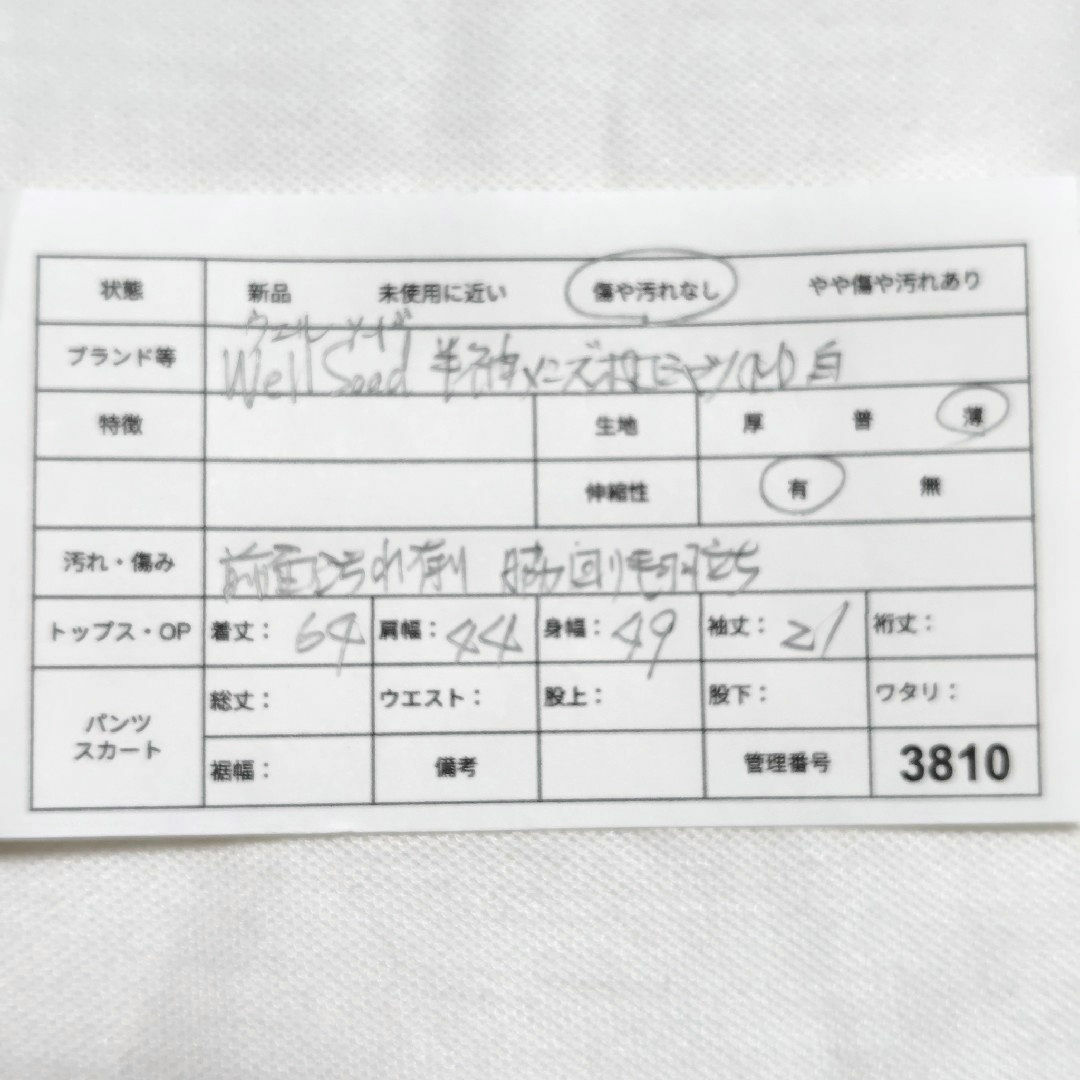 状態 新品 未使用に近い 傷や汚れなし やや傷や汚れあり
ウェル
ブランド等 Well 半袖メンズポロシャツ 白
特徴 生地 厚 普 薄
伸縮性 有 無
汚れ・傷み 汚れ有り 毛羽立ち
トップス・OP 着丈: 64 肩幅: 44 身幅: 49 袖丈: 21 裄丈:
パンツ スカート 総丈: ウエスト: 股上: 股下: ワタリ:
裾幅: 備考 管理番号 3810